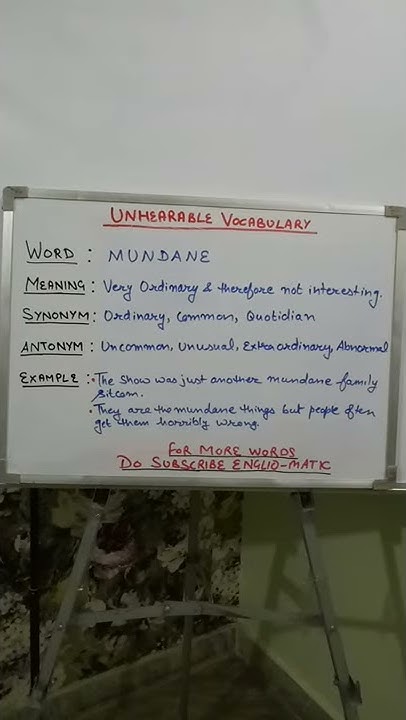 UNHEARABLE VOCABULARY
WORD : MUNDANE
MEANING : Very Ordinary & therefore not interesting.
SYNONYM : Ordinary, Common, Quotidian
ANTONYM : Uncommon, Unusual, Extraordinary, Abnormal
EXAMPLE : • The show was just another mundane family
sitcom.
• They are the mundane things but people often
get them horribly wrong.
FOR MORE WORDS
DO SUBSCRIBE ENGLIO-MATIC